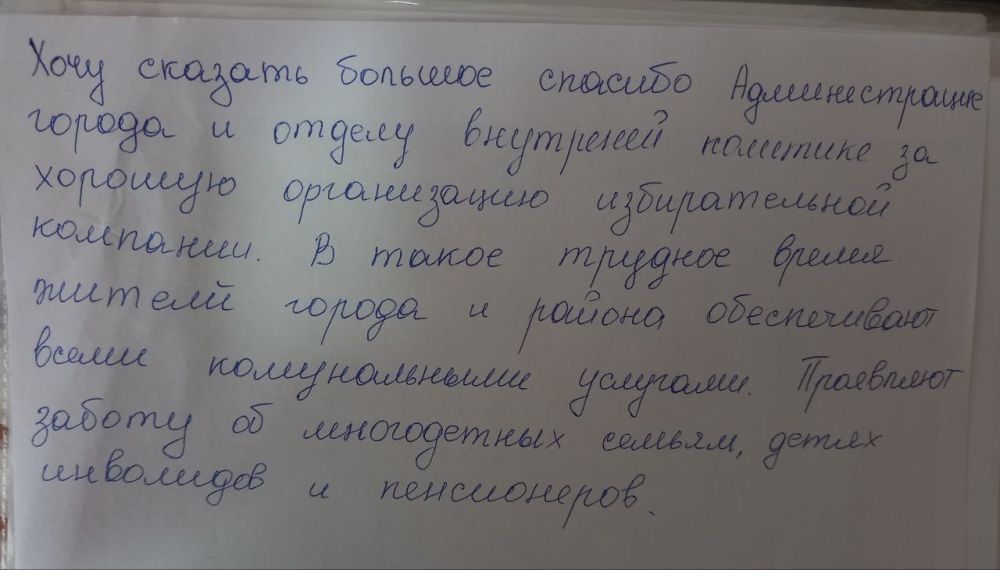 Хочу сказать большое спасибо Администрацие
города и отделу внутреней политике за
хорошую организацию избирательной
компании. В такое трудное время
жителй города и района обеспечивают
всеми комунальными услугами. Проевляют
заботу об многодетных семьям, детях
инволидов и пенсионеров.